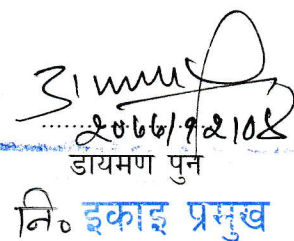 २०७७/१२/०४
डायमण पुन
नि॰ इकाइ प्रमुख